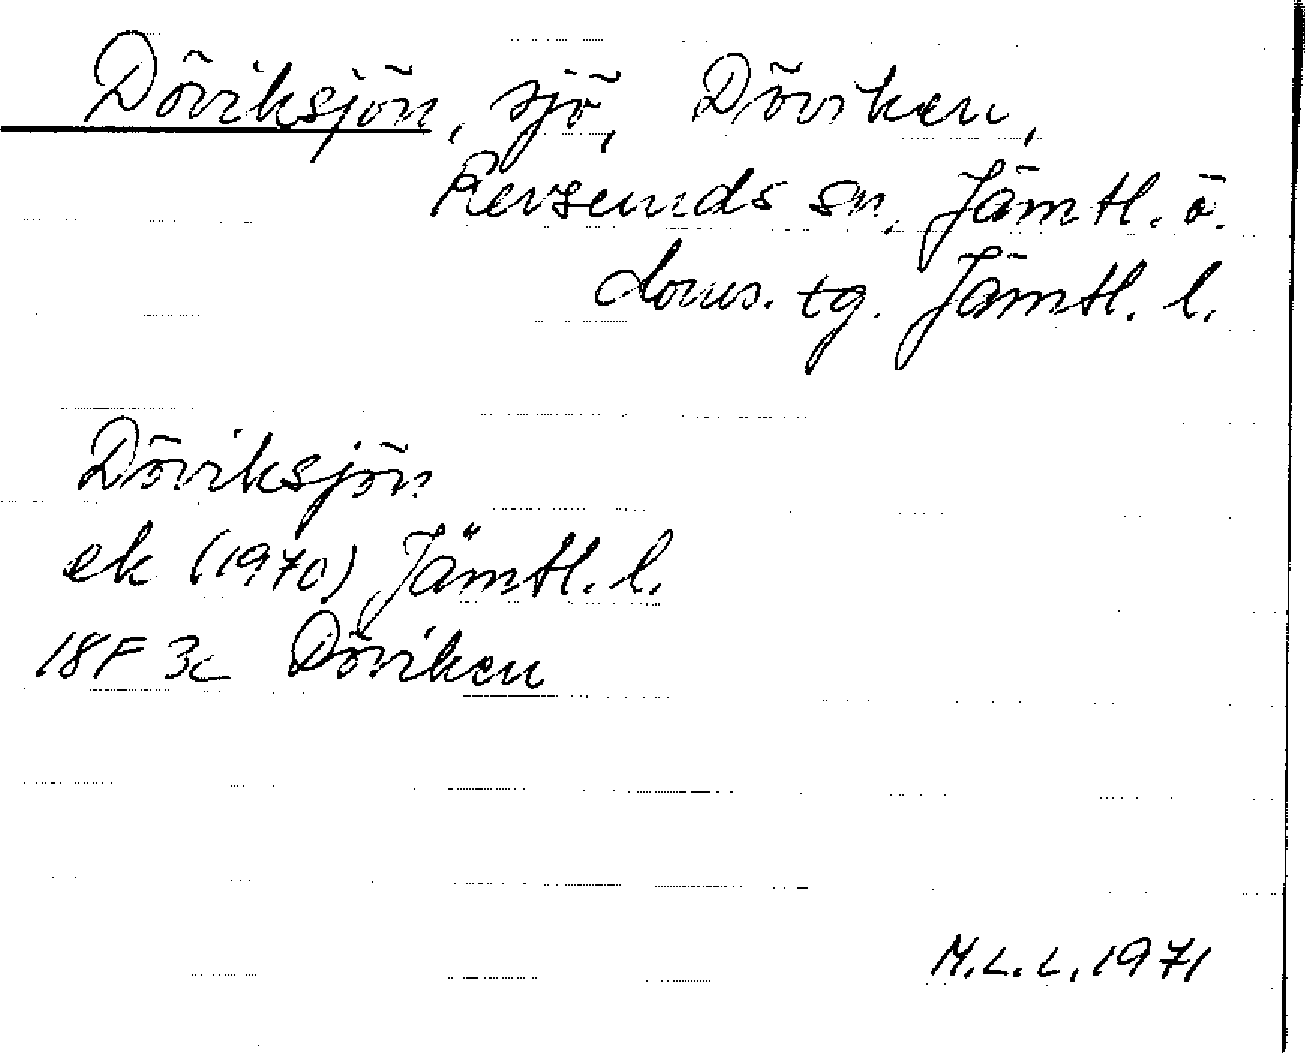 Döviksjön, sjö, Döviken,
Revsunds sn, Jämtl. ö.
doms. tg. Jämtl. l.
Döviksjön
ek (1970) Jämtl. l.
18F 3c Döviken
M.L.L. 1971